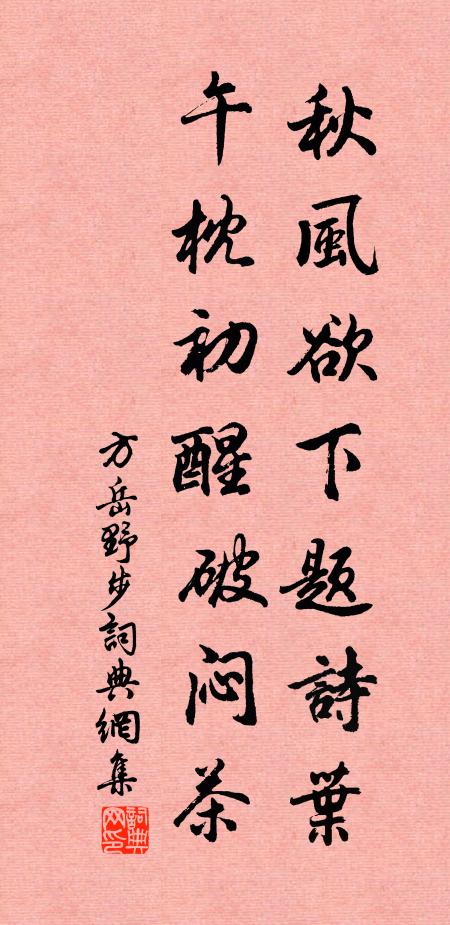 秋風欲下题詩葉
午枕初醒破闷茶
方岳野步詞典網集
詞典网印